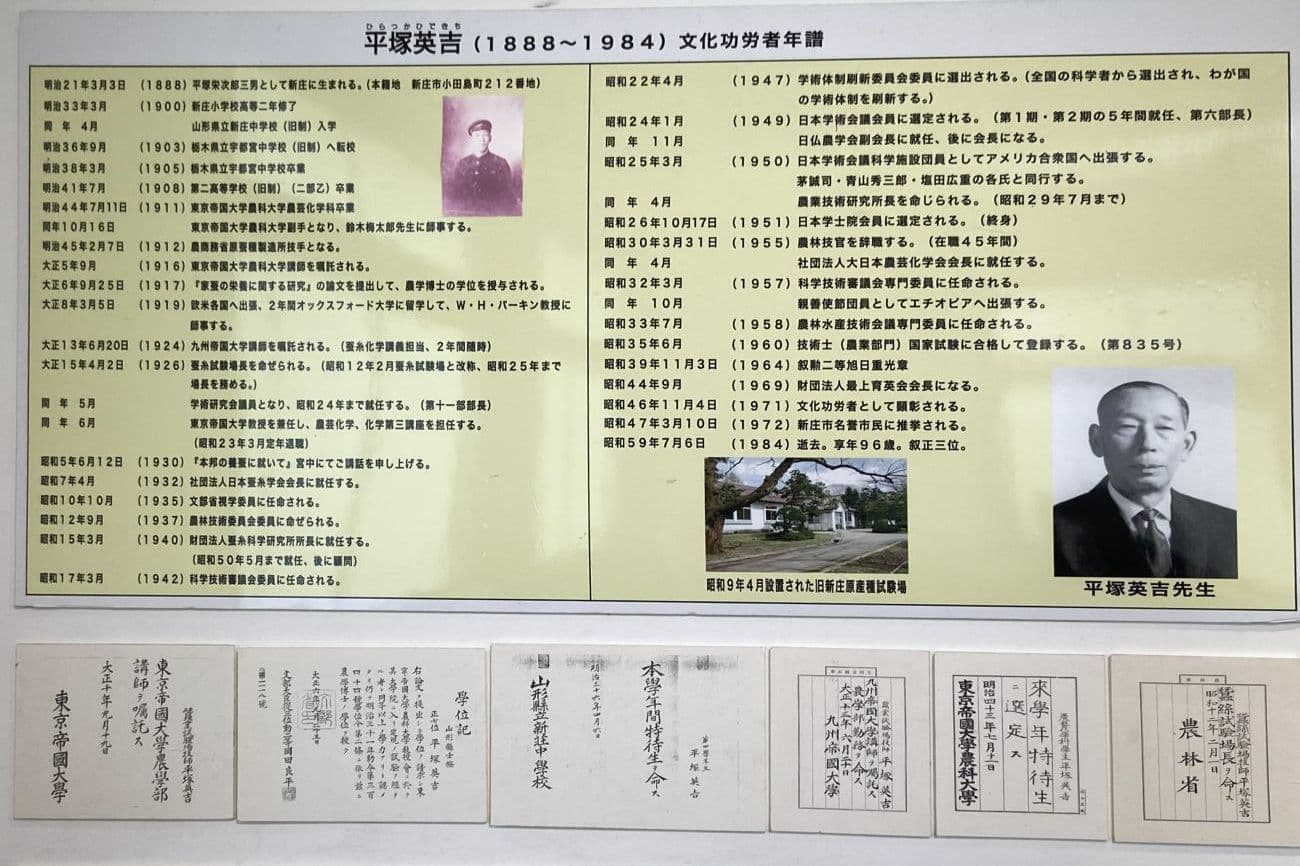 ひらつかひできち
平塚英吉(1888～1984)文化功労者年譜
明治21年3月3日 (1888) 平塚栄次郎三男として新庄に生まれる。(本籍地 新庄市小田島町212番地)
明治33年3月 (1900) 新庄小学校高等二年修了
同 年 4月 山形県立新庄中学校(旧制)入学
明治36年9月 (1903) 栃木県立宇都宮中学校(旧制)へ転校
明治38年3月 (1905) 栃木県立宇都宮中学校卒業
明治41年7月 (1908) 第二高等学校(旧制)(二部乙)卒業
明治44年7月11日 (1911) 東京帝国大学農科大学農芸化学科卒業
同年10月16日 東京帝国大学農科大学副手となり、鈴木梅太郎先生に師事する。
明治45年2月7日 (1912) 農商務省原蚕種製造所技手となる。
大正5年9月 (1916) 東京帝国大学農科大学講師を嘱託される。
大正6年9月25日 (1917) 『家蚕の栄養に関する研究』の論文を提出して、農学博士の学位を授与される。
大正8年3月5日 (1919) 欧米各国へ出張、2年間オックスフォード大学に留学して、W・H・パーキン教授に
師事する。
大正13年6月20日 (1924) 九州帝国大学講師を嘱託される。(蚕糸化学講義担当、2年間随時)
大正15年4月2日 (1926) 蚕糸試験場長を命ぜられる。(昭和12年2月蚕糸試験場と改称、昭和25年まで
場長を務める。)
同 年 5月 学術研究会議員となり、昭和24年まで就任する。(第十一部部長)
同 年 6月 東京帝国大学教授を兼任し、農芸化学、化学第三講座を担任する。
(昭和23年3月定年退職)
昭和5年6月12日 (1930) 『本邦の養蚕に就いて』宮中にてご講話を申し上げる。
昭和7年4月 (1932) 社団法人日本蚕糸学会会長に就任する。
昭和10年10月 (1935) 文部省視学委員に任命される。
昭和12年9月 (1937) 農林技術委員会委員に命ぜられる。
昭和15年3月 (1940) 財団法人蚕糸科学研究所所長に就任する。
(昭和50年5月まで就任、後に顧問)
昭和17年3月 (1942) 科学技術審議会委員に任命される。
昭和22年4月 (1947) 学術体制刷新委員会委員に選出される。(全国の科学者から選出され、わが国
の学術体制を刷新する。)
昭和24年1月 (1949) 日本学術会議会員に選定される。(第1期・第2期の5年間就任、第六部長)
同 年 11月 日仏農学会副会長に就任、後に会長になる。
昭和25年3月 (1950) 日本学術会議科学施設団員としてアメリカ合衆国へ出張する。
茅誠司・青山秀三郎・塩田広重の各氏と同行する。
同 年 4月 農業技術研究所長を命じられる。(昭和29年7月まで)
昭和26年10月17日 (1951) 日本学士院会員に選定される。(終身)
昭和30年3月31日 (1955) 農林技官を辞職する。(在職45年間)
同 年 4月 社団法人大日本農芸化学会会長に就任する。
昭和32年3月 (1957) 科学技術審議会専門委員に任命される。
同 年 10月 親善使節団員としてエチオピアへ出張する。
昭和33年7月 (1958) 農林水産技術会議専門委員に任命される。
昭和35年6月 (1960) 技術士(農業部門)国家試験に合格して登録する。(第835号)
昭和39年11月3日 (1964) 叙勲二等旭日重光章
昭和44年9月 (1969) 財団法人最上育英会会長になる。
昭和46年11月4日 (1971) 文化功労者として顕彰される。
昭和47年3月10日 (1972) 新庄市名誉市民に推挙される。
昭和59年7月6日 (1984) 逝去。享年96歳。叙正三位。
昭和9年4月設置された旧新庄原産種試験場
平塚英吉先生
蠶業試験場技師平塚英吉
東京帝國大學農學部
講師ヲ嘱託ス
大正十年九月十九日
東京帝國大學
學位記
山形縣士族
正七位 平塚英吉
右論文ヲ提出シ學位ヲ請求シ東
京帝國大學農科大學教授會ニ於テ
其大學院ニ入リ定規ノ試験ヲ經タ
ル者ト同等以上ノ學力アリト認メ
タリ仍テ明治三十一年勅令第三百
四十四號學位令第二條ニ依リ茲ニ
農學博士ノ學位ヲ授ク
文部大臣從三位勲二等岡田良平
第一學年生
平塚英吉
本學年間特待生ヲ命ス
明治三十六年四月六日
山形縣立新莊中學校
蠶業試験場技師 平塚英吉
九州帝國大學講師ヲ嘱託ス
農學部勤務ヲ命ス
大正十三年六月二十日
九州帝國大學
農藝化學科學生平塚英吉
來學年特待生
ニ選定ス
明治四十三年七月十一日
東京帝國大學農科大學
蠶絲試驗場技師平塚英吉
蠶絲試驗場長ヲ命ス
昭和十二年二月一日
農林省